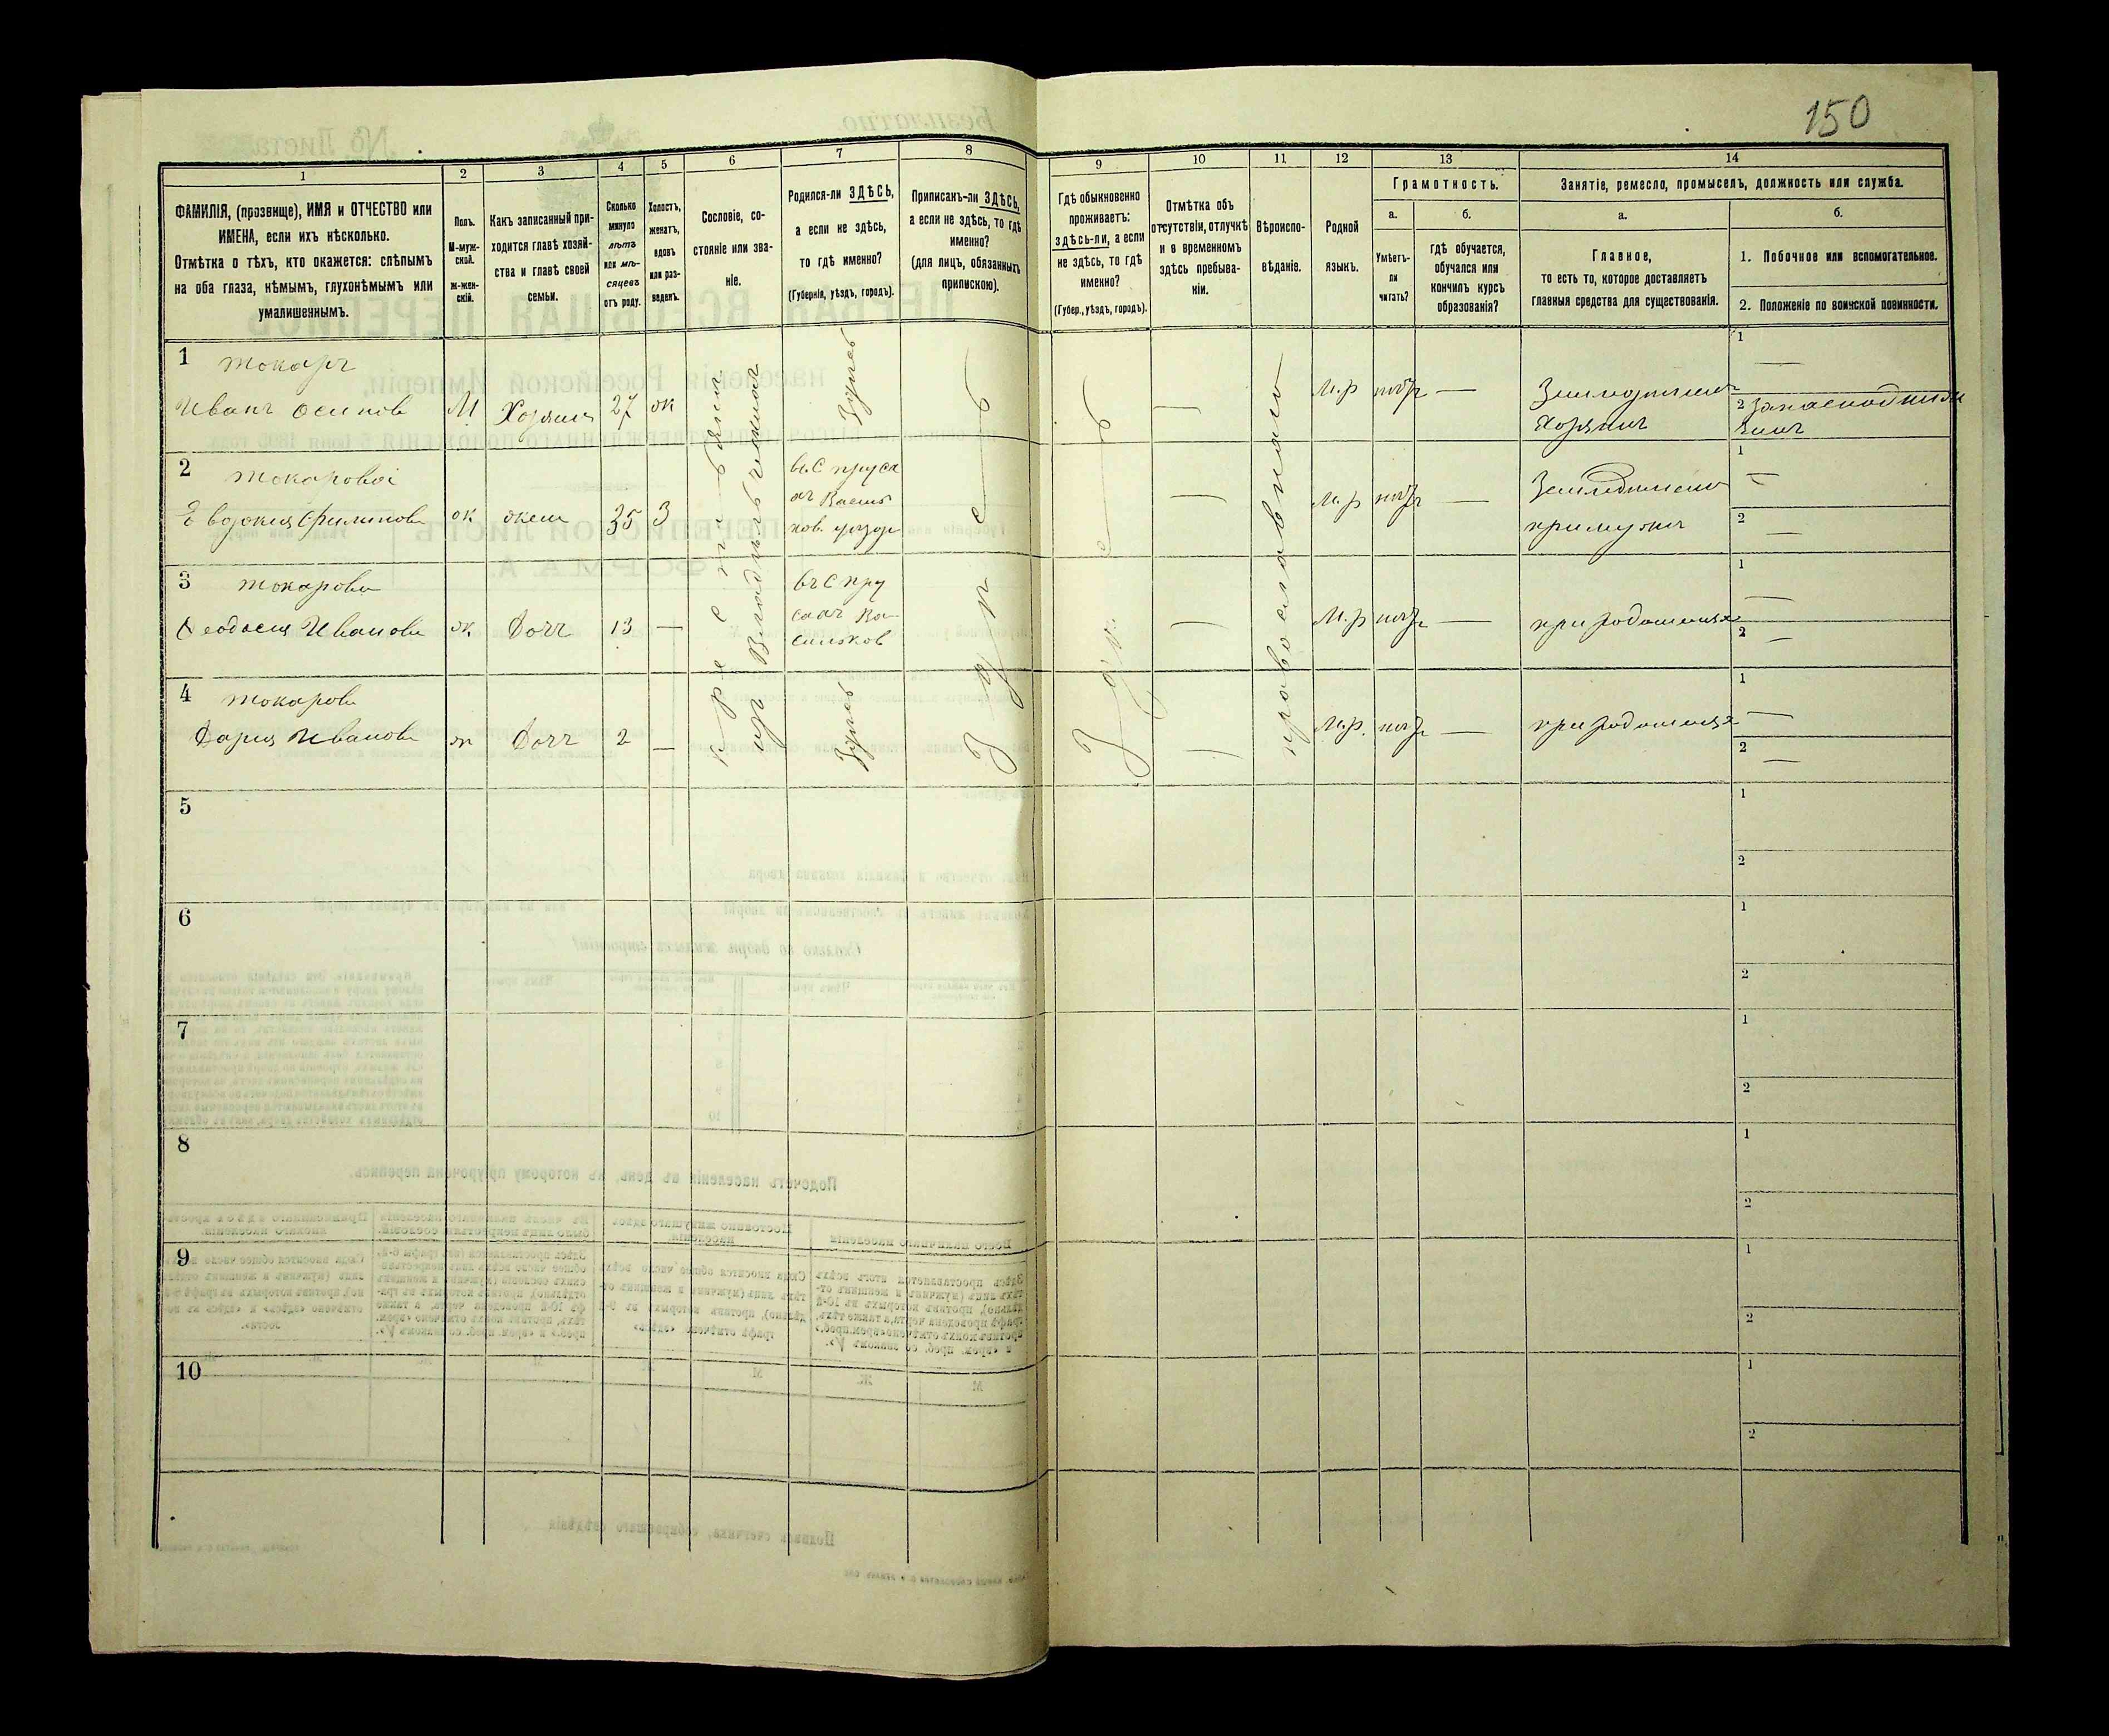 150
1
2
3
4
5
6
7
8
9
10
11
12
13
14
ФАМИЛІЯ, (прозвище), ИМЯ и ОТЧЕСТВО или
ИМЕНА, если ихъ нѣсколько.
Отмѣтка о тѣхъ, кто окажется: слѣпымъ
на оба глаза, нѣмымъ, глухонѣмымъ или
умалишеннымъ.
Полъ.
М-муж-
ской.
ж-жен-
скій.
Какъ записанный при-
ходится главѣ хозяй-
ства и главѣ своей
семьи.
Сколько
минуло
лѣтъ
или мѣ-
сяцевъ
отъ роду.
Холостъ,
женатъ,
вдовъ
или раз-
веденъ.
Сословіе, со-
стояніе или зва-
ніе.
Родился-ли ЗДѢСЬ,
а если не здѣсь,
то гдѣ именно?
(Губернія, уѣздъ, городъ).
Приписанъ-ли ЗДѢСЬ,
а если не здѣсь, то гдѣ
именно?
(для лицъ, обязанныхъ
припискою).
Гдѣ обыкновенно
проживаетъ:
здѣсь-ли, а если
не здѣсь, то гдѣ
именно?
(Губер., уѣздъ, городъ).
Отмѣтка объ
отсутствіи, отлучкѣ
и в временномъ
здѣсь пребыва-
ніи.
Вѣроиспо-
вѣданіе.
Родной
языкъ.
Грамотность.
а.
б.
Умѣетъ-
ли
читать?
гдѣ обучается,
обучался или
кончилъ курсъ
образованія?
Занятіе, ремесло, промыселъ, должность или служба.
а.
б.
Главное,
то есть то, которое доставляетъ
главныя средства для существованія.
1. Побочное или вспомогательное.
2. Положеніе по воинской повинности.
1 Токарь
Иванъ Осипов М Хозяинъ 27 ж
Здѣсь
М.р нѣтъ —
Земледѣлецъ
Хозяинъ
1 —
2
2 Токаровой
Евдокия Филипова ж жена 35 З
въ С пруса
ах Василь
ков. уѣзд
М.р нѣтъ —
Земледѣлие
примужѣ
1 —
2 —
3 Токарова
Феодосия Иванова ж Дочь 13 —
въ С пру
сахъ Ва-
сильков
М.р нѣтъ —
при родителяхъ
1 —
2 —
4 Токарова
Дария Иванова ж Дочь 2 —
Здѣсь
М.р. нѣтъ —
при родителяхъ
1 —
2 —
крестьянин
из Владѣльческих
Здѣсь
Здѣсь
православного
5
1
2
6
1
2
7
1
2
8
1
2
9
1
2
10
1
2